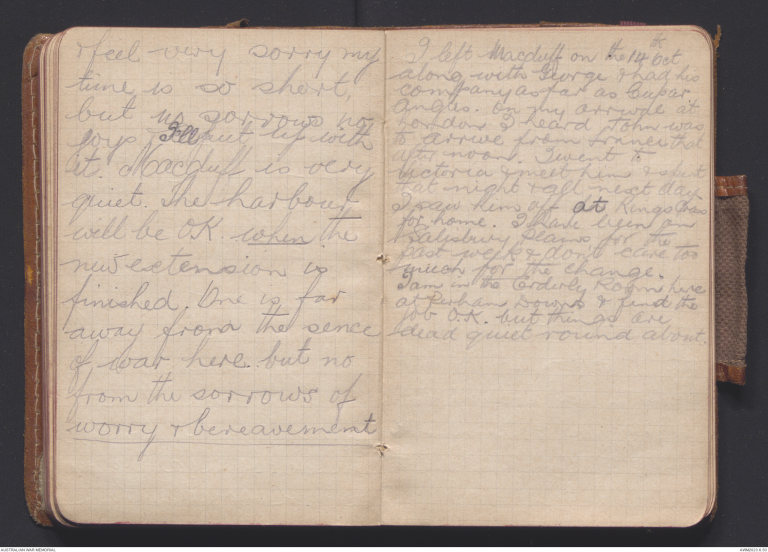 & feel very sorry my
time is so short,
but no sorrows no
joys I'll put up with
it. Macduff is very
quiet. The harbour
will be O.K. when the
new extension is
finished. One is far
away from the sence
of war here. but no
from the sorrows of
worry & bereavement
I left Macduff on the 14th Oct
along with George & had his
company as far as Cupar
Angus. On my arrival at
London I heard John was
to arrive from France that
afternoon. I went to
Victoria & meet him & spent
that night & all next day
I saw him off at Kings Cross
for home. I have been on
Salisbury Plains for the
past week & dont care too
much for the change.
I am in the Orderly Room here
at Perham Downs & find the
job O.K. but things are
dead quiet round about.
AUSTRALIAN WAR MEMORIAL